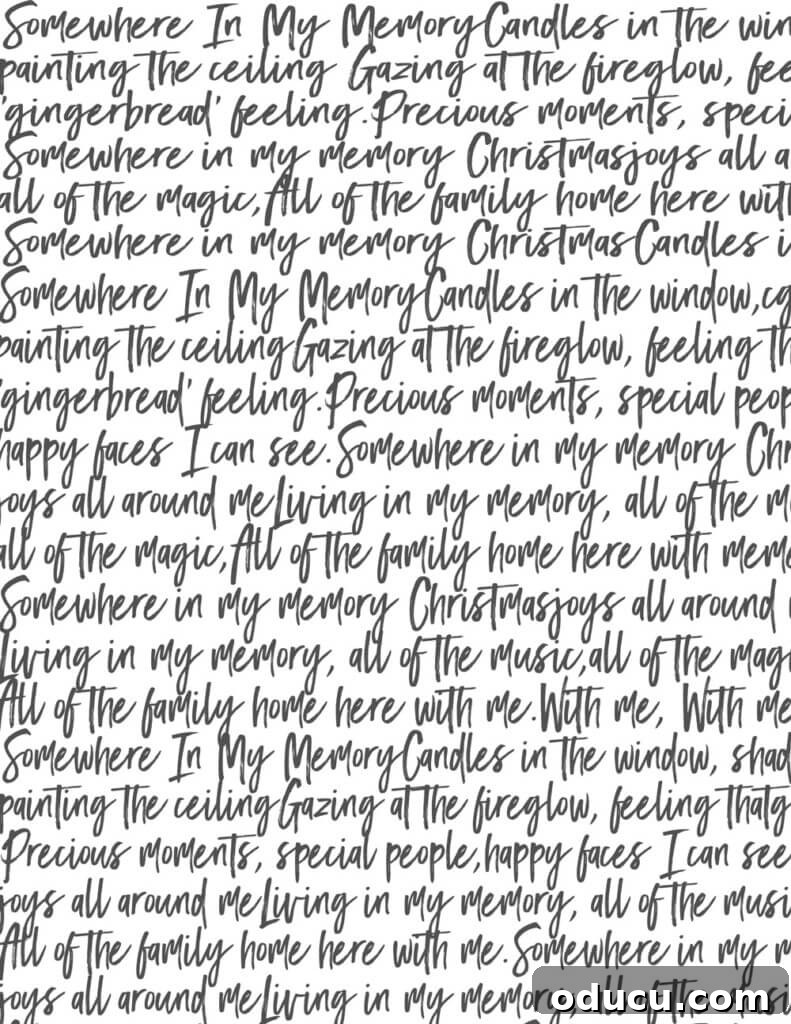 Somewhere In My MemoryCandles in the win
painting the ceiling Gazing at the fireglow, fee
'gingerbread' feeling.Precious moments, speci
Somewhere in my memory Christmasjoys all a
all of the magic,All of the family home here wit
Somewhere in my memory ChristmasCandles i
Somewhere In My MemoryCandles in the window,cg
painting the ceilingGazing at the fireglow, feeling th
'gingerbread' feeling.Precious moments, special peop
happy faces I can see.Somewhere in my memory Chr
joys all around meLiving in my memory, all of the m
all of the magic,All of the family home here with mem
Somewhere in my memory Christmasjoys all around
Living in my memory, all of the music,all of the magi
All of the family home here with me.With me, With me
Somewhere In My MemoryCandles in the window, shad
painting the ceilingGazing at the fireglow, feeling thatg
Precious moments, special people,happy faces I can see
joys all around meLiving in my memory, all of the musi
All of the family home here with me.Somewhere in my m
joys all around meLiving in my memory, all of the musi
oducu.com